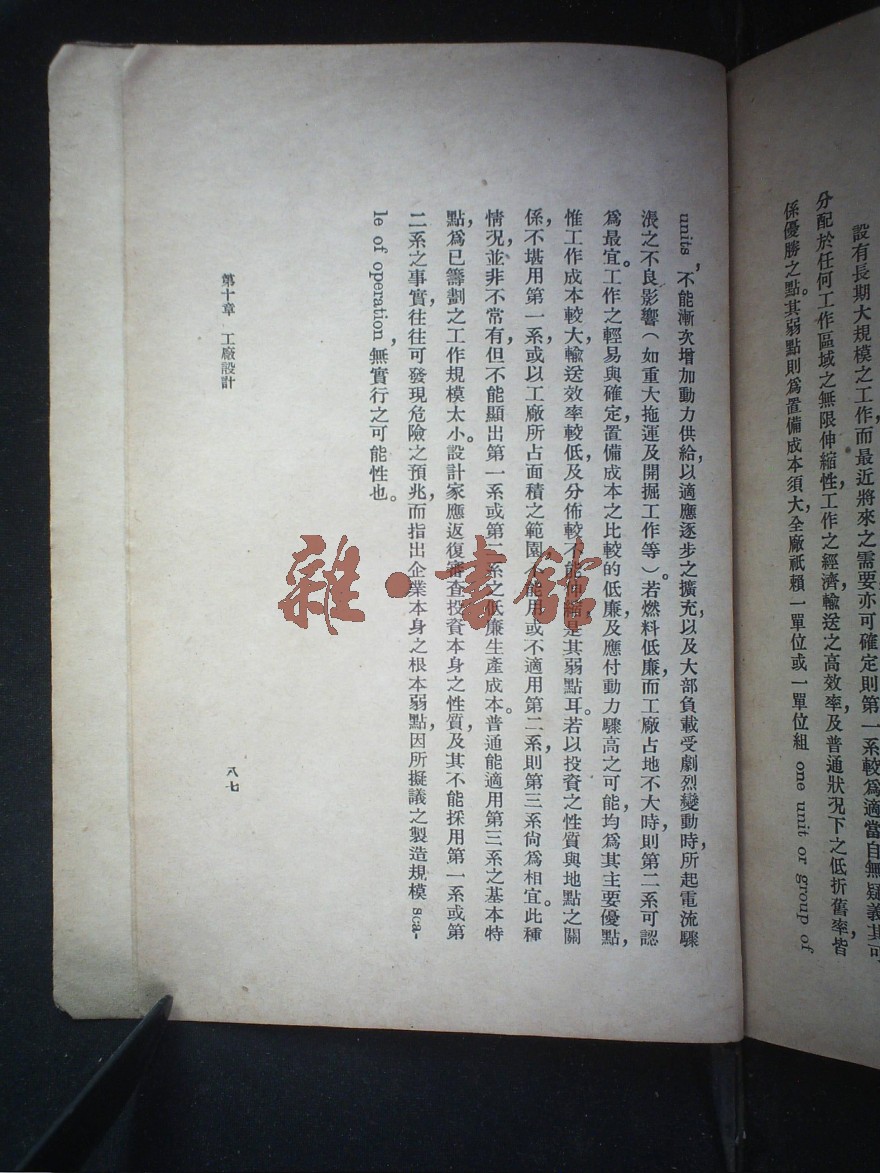 設有長期大規模之工作，而最近將來之需要亦可確定，則第一系較爲適當，自無疑義。其可
分配於任何工作區域之無限伸縮性，工作之經濟，輸送之高效率，及普通狀況下之低折舊率，皆
係優勝之點。其弱點則爲置備成本須大，全廠祇賴一單位或一單位組 one unit or group of
units，不能漸次增加動力供給，以適應逐步之擴充，以及大部負載受劇烈變動時，所起電流驟
漲之不良影響（如重大拖運及開掘工作等）。若燃料低廉，而工廠占地不大時，則第二系可認
爲最宜。工作之輕易與確定，置備成本之比較的低廉，及應付動力驟高之可能，均爲其主要優點，
惟工作成本較大，輸送效率較低，及分佈較不能伸縮，是其弱點耳。若以投資之性質與地點之關
係，不堪用第一系，或以工廠所占面積之範圍，不能用或不適用第二系，則第三系尙爲相宜。此種
情況，並非不常有，但不能顯出第一系或第二系之低廉生產成本。普通能適用第三系之基本特
點，爲已籌劃之工作規模太小。設計家應返復審查投資本身之性質，及其不能採用第一系或第
二系之事實，往往可發現危險之預兆，而指出企業本身之根本弱點，因所擬議之製造規模 sca-
le of operation，無實行之可能性也。
第十章　工廠設計
八七
雜·書館